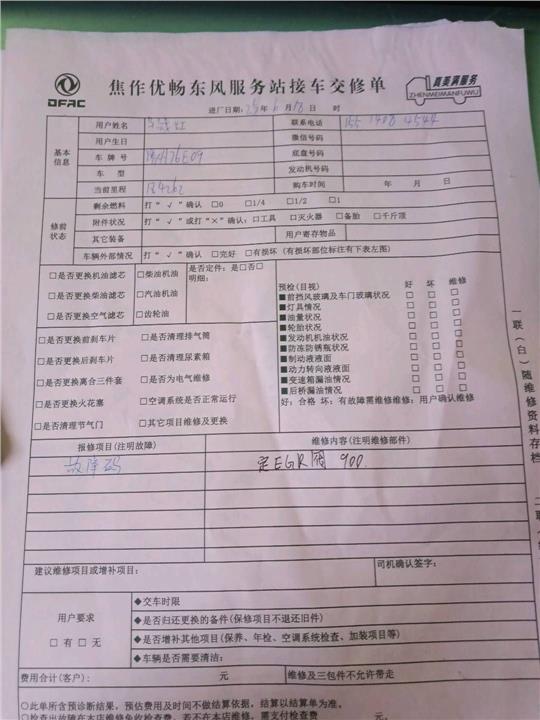 DFAC
焦作优畅东风服务站接车交修单
真美满服务
ZHENMEIMANFUWU
进厂日期: 年 月18日 时
基本信息
用户姓名 联系电话 155
用户生日 微信号码
车牌号 底盘号码
车型 发动机号码
当前里程 购车时间 年 月 日
修前状态
剩余燃料 打“√”确认 □0 □1/4 □1/2 □1
附件状况 打“√”或打“×”确认:□工具 □灭火器 □备胎 □千斤顶
其它装备 用户寄存物品
车辆外部情况 打“√”确认 □完好 □有损坏(有损坏部位标注有下表左图)
□是否更换机油滤芯 □柴油机油 是否定件:是□否□
明细:
□是否更换柴油滤芯 □汽油机油
□是否更换空气滤芯 □齿轮油
预检(目视) 好 坏 维修
■前挡风玻璃及车门玻璃状况 □ □ □
■灯具情况 □ □ □
■油量状况 □ □ □
■轮胎状况 □ □ □
■发动机机油状况 □ □ □
■防冻防锈瓶状况 □ □ □
■制动液液面 □ □ □
■动力转向液液面 □ □ □
■变速箱漏油情况 □ □ □
■后桥漏油情况 □ □ □
好:合格 坏:有故障需维修维修:用户确认维修
□是否更换前刹车片 □是否清理排气筒
□是否更换后刹车片 □是否清理尿素箱
□是否更换离合三件套 □是否为电气维修
□是否更换火花塞 □空调系统是否正常运行
□是否清理节气门 □其它项目维修及更换
报修项目(注明故障) 维修内容(注明维修部件)
故障码 定EGR阀 900
建议维修项目或增补项目: 司机确认签字:
用户要求
□有□无
◆交车时限
◆是否归还更换的备件(保修项目不退还旧件)
◆是否增补其他项目(保养、年检、空调系统检查、加装项目等)
◆车辆是否需要清洁:
费用合计(客户): 元 维修及三包件不允许带走
○此单所含预诊断结果,预估费用及时间不做结算依据,结算以结算单为准。
○检查出故障在本店维修免收检查费,若不在本店维修,需支付检查费 元
一联(白)随维修资料存档